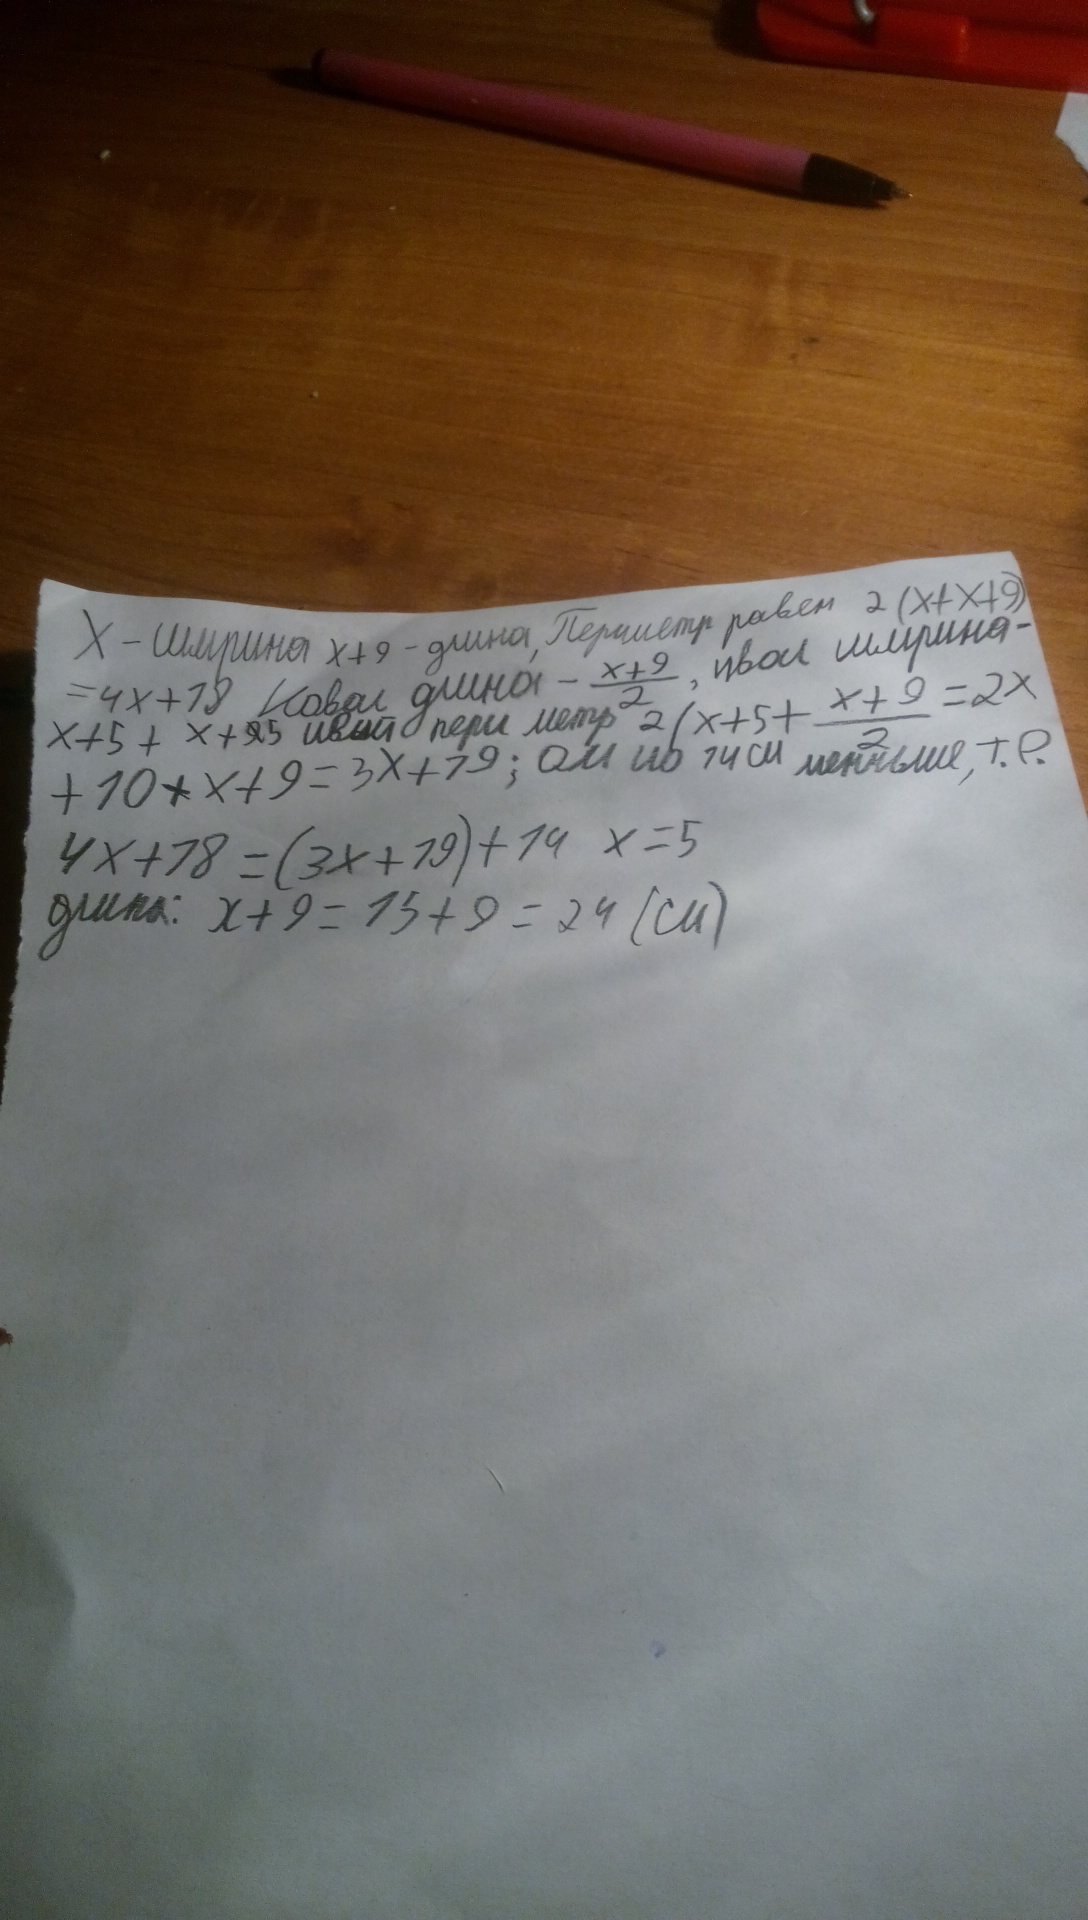 X - ширина x+9 - длина, Периметр равен 2(x+x+9)
=4x+18 новая длина - \frac{x+9}{2}, новая ширина -
x+5 + x+95 новый периметр 2(x+5+\frac{x+9}{2}=2x
+10+x+9=3x+19; он на 14 см меньше, т.е.
4x+18=(3x+19)+14 x=5
длина: x+9=15+9=24 (см)